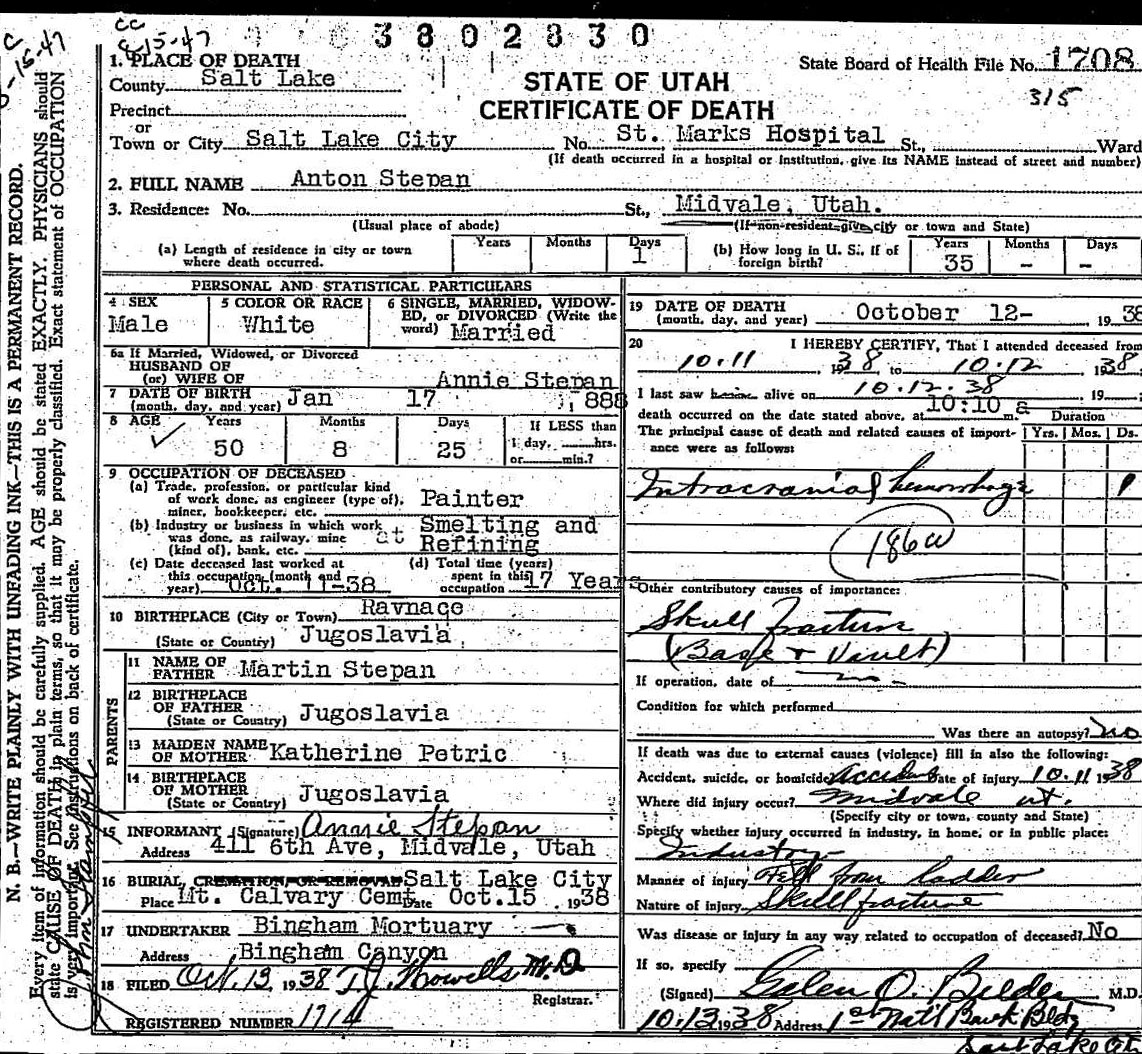 CC
8-15-47
3802830
1. PLACE OF DEATH
County Salt Lake
Precinct
or
Town or City Salt Lake City
STATE OF UTAH
CERTIFICATE OF DEATH
State Board of Health File No. 1708
315
No. St. Marks Hospital St., Ward
(If death occurred in a hospital or institution, give its NAME instead of street and number)
2. FULL NAME Anton Stepan
3. Residence: No. St., Midvale, Utah.
(Usual place of abode) (If non-resident give city or town and State)
(a) Length of residence in city or town where death occurred. Years Months Days 1
(b) How long in U. S., if of foreign birth? Years 35 Months - Days -
PERSONAL AND STATISTICAL PARTICULARS
4 SEX Male
5 COLOR OR RACE White
6 SINGLE, MARRIED, WIDOWED, or DIVORCED (Write the word) Married
6a If Married, Widowed, or Divorced
HUSBAND OF
(or) WIFE OF Annie Stepan
7 DATE OF BIRTH
(month, day, and year) Jan 17 1,888
8 AGE Years 50 Months 8 Days 25
If LESS than 1 day, hrs. or min.?
9 OCCUPATION OF DECEASED
(a) Trade, profession, or particular kind of work done, as engineer (type of), miner, bookkeeper, etc. Painter
(b) Industry or business in which work was done, as railway, mine (kind of), bank, etc. at Smelting and Refining
(c) Date deceased last worked at this occupation (month and year) Oct. 11-38
(d) Total time (years) spent in this occupation 17 Years
10 BIRTHPLACE (City or Town) Ravnace
(State or Country) Jugoslavia
PARENTS
11 NAME OF FATHER Martin Stepan
12 BIRTHPLACE OF FATHER
(State or Country) Jugoslavia
13 MAIDEN NAME OF MOTHER Katherine Petric
14 BIRTHPLACE OF MOTHER
(State or Country) Jugoslavia
15 INFORMANT (Signature) Annie Stepan
Address 411 6th Ave, Midvale, Utah
16 BURIAL, CREMATION OR REMOVAL Salt Lake City
Place Mt. Calvary Cemt Date Oct.15 , 1938
17 UNDERTAKER Bingham Mortuary
Address Bingham Canyon
18 FILED Oct. 13, 1938 T.J. Howells M.D
Registrar.
REGISTERED NUMBER 1714
19 DATE OF DEATH
(month, day, and year) October 12- , 1938
20 I HEREBY CERTIFY, That I attended deceased from
10.11 , 1938, to 10.12 , 1938,
I last saw h alive on 10.12.38 , 19
death occurred on the date stated above, at 10:10 a m. Duration
The principal cause of death and related causes of importance were as follows: Yrs. Mos. Ds.
Intracranial hemorrhage 1
186a
Other contributory causes of importance:
Skull fracture
(Base + Vault)
If operation, date of
Condition for which performed
Was there an autopsy? no
If death was due to external causes (violence) fill in also the following:
Accident, suicide, or homicide Accident Date of injury 10.11 1938
Where did injury occur? Midvale ut.
(Specify city or town, county and State)
Specify whether injury occurred in industry, in home, or in public place:
Industry
Manner of injury Fell from ladder
Nature of injury Skull fracture
Was disease or injury in any way related to occupation of deceased? No
If so, specify
(Signed) Galen O. Belden M.D.
10.13 1938 Address 1st Nat'l Bank Bldg
Salt Lake Ct.
N. B.—WRITE PLAINLY WITH UNFADING INK—THIS IS A PERMANENT RECORD.
Every item of information should be carefully supplied. AGE should be stated EXACTLY. PHYSICIANS should
state CAUSE OF DEATH in plain terms, so that it may be properly classified. Exact statement of OCCUPATION
is very important. See instructions on back of certificate.